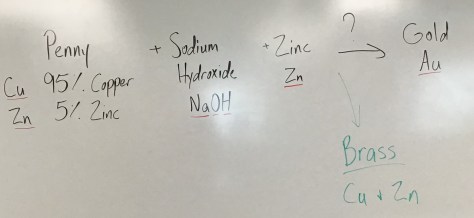 Penny + Sodium + Zinc ? → Gold
Hydroxide Zn Au
Cu 95%. Copper NaOH
Zn 5%. Zinc
Brass
Cu + Zn